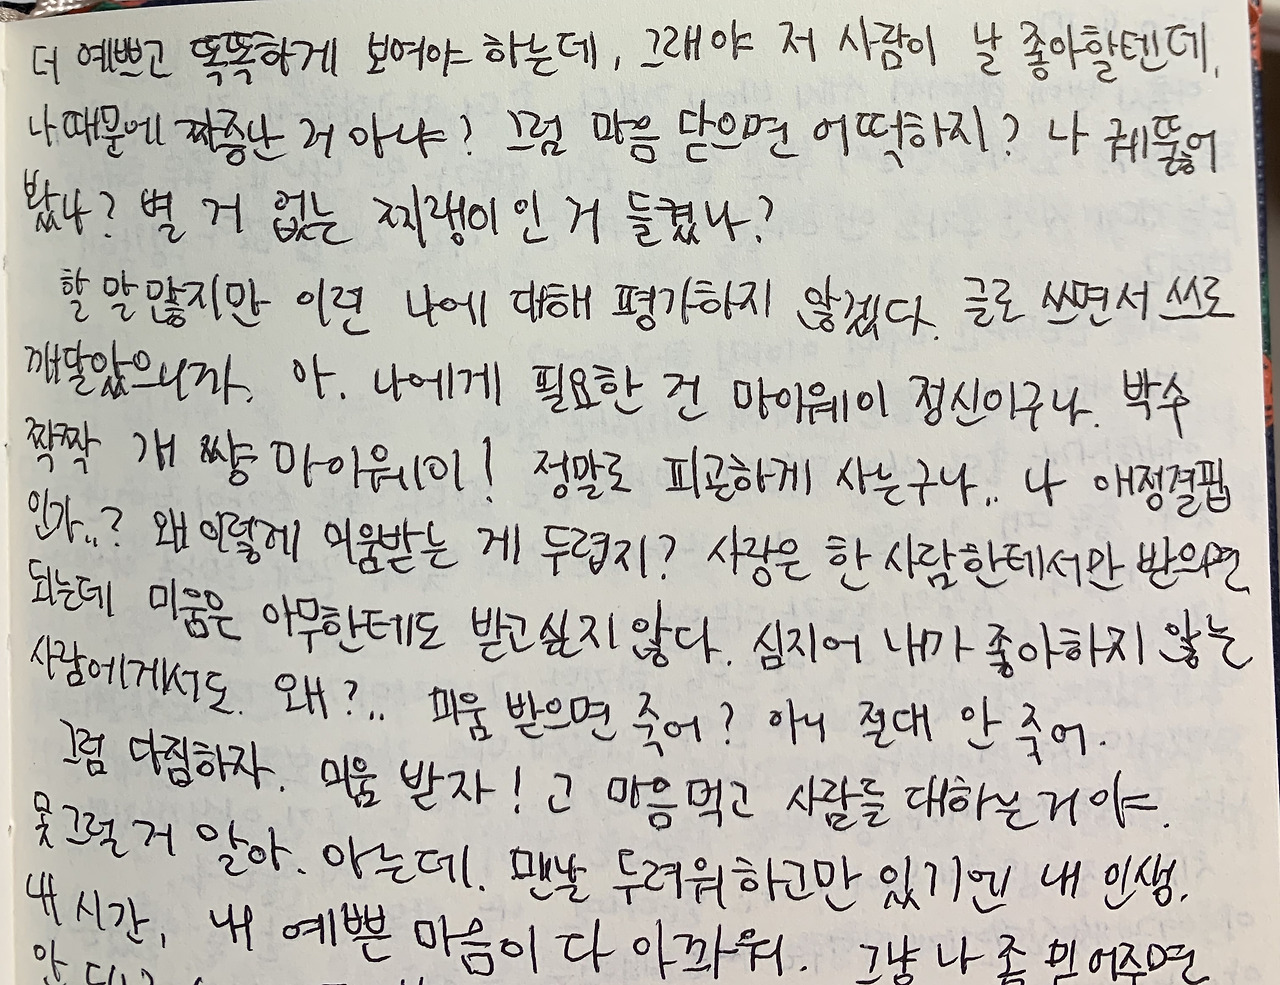 더 예쁘고 똑똑하게 보여야 하는데, 그래야 저 사람이 날 좋아할텐데,
나 때문에 짜증난 거 아냐? 그럼 마음 닫으면 어떡하지? 나 꿰뚫어
봤나? 별 거 없는 찌랭이인 거 들켰나?
할 말 많지만 이런 나에 대해 평가하지 않겠다. 글로 쓰면서 쓰로
깨달았으니까. 아. 나에게 필요한 건 마이웨이 정신이구나. 박수
짝짝 개 쌍 마이웨이! 정말로 피곤하게 사는구나.. 나 애정결핍
인가..? 왜 이렇게 미움받는 게 두렵지? 사랑은 한 사람한테서만 받으면
되는데 미움은 아무한테도 받고싶지 않다. 심지어 내가 좋아하지 않는
사람에게서도. 왜?.. 미움 받으면 죽어? 아니 절대 안 죽어.
그럼 다짐하자. 미움 받자! 고 마음먹고 사람들 대하는거야.
못그럴 거 알아. 아는데. 맨날 두려워하고만 있기엔 내 인생.
내 시간, 내 예쁜 마음이 다 아까워. 그냥 나 좀 믿어주면